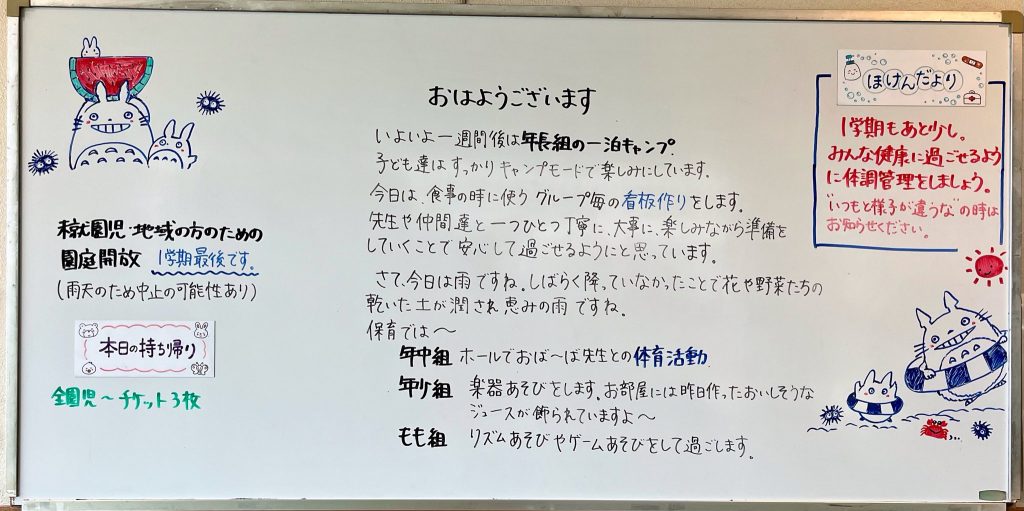 おはようございます
いよいよ一週間後は年長組の一泊キャンプ.
子ども達はすっかりキャンプモードで楽しみにしています.
今日は、食事の時に使う グループ毎の看板作りをします。
先生や仲間達と一つひとつ丁寧に、大事に、楽しみながら準備を
していくことで安心して過ごせるようにと思っています。
さて、今日は雨ですね。しばらく降っていなかったことで花や野菜たちの
乾いた土が潤され、恵みの雨ですね。
保育では〜
年中組 ホールでおば〜ば先生との体育活動
年少組 楽器あそびをします。お部屋には昨日作ったおいしそうな
ジュースが飾られていますよ〜
もも組 リズムあそびやゲームあそびをして過ごします。
未就園児・地域の方のための
園庭開放 1学期最後です。
(雨天のため中止の可能性あり)
本日の持ち帰り
全園児〜チケット3枚
ほけんだより
1学期もあと少し。
みんな健康に過ごせるよう
に体調管理をしましょう。
"いつもと様子が違うな"の時は
お知らせください。